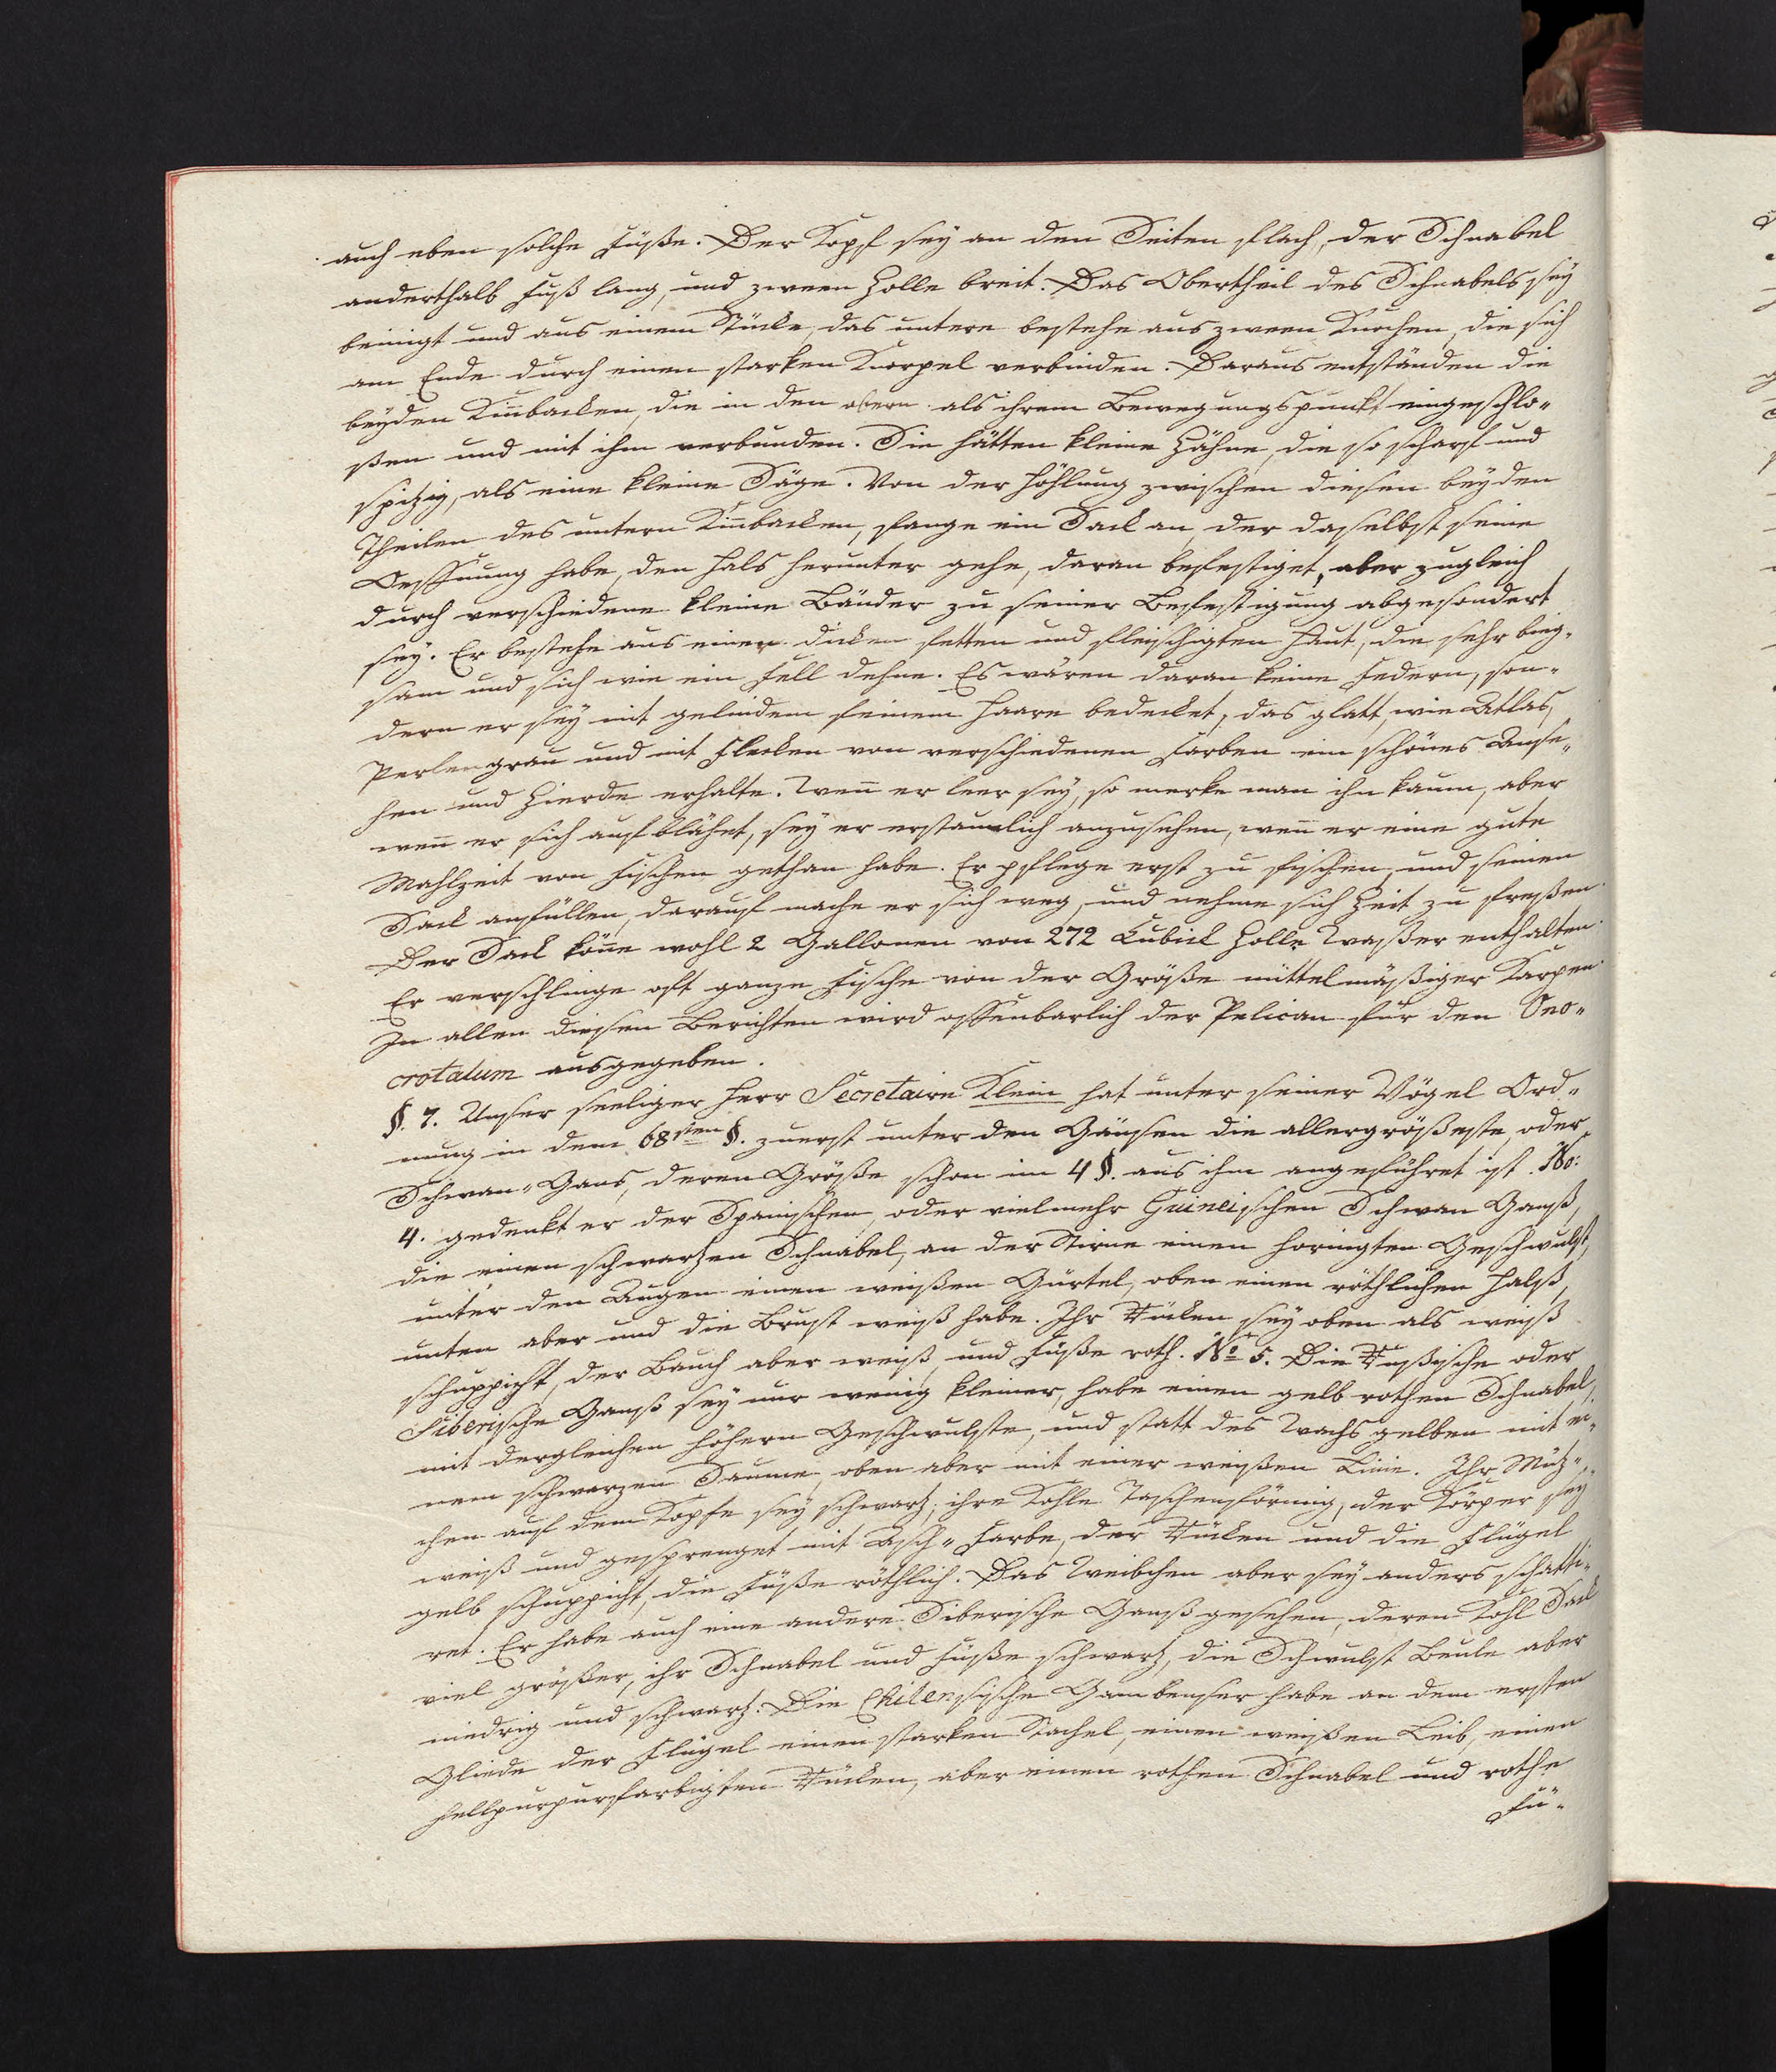 auch eben solche Füße. Der Kopf sey an den Seiten flach, der Schnabel
anderthalb Fuß lang, und zween Zolle breit. Das Obertheil des Schnabels sey
beinigt und aus einem Stücke, das untere bestehe aus zween Knochen, die sich
am Ende durch einen starken Knorpel verbinden. Daraus entständen die
beyden Kin̄backen, die in den obern als ihrem Bewegungspunkt eingeschlo-
ßen und mit ihm verbunden. Sie hätten kleine Zähne, die so scharf und
spitzig, als eine kleine Säge. Von der Höhlung zwischen diesen beyden
Theilen des untern Kin̄backen, fange ein Sack an, der daselbst seine
Oeffnung habe, den Hals herunter gehe, daran befestiget, aber zugleich
durch verschiedene kleine Bänder zu seiner Befestigung abgesondert
sey. Er bestehe aus einer dicken fetten und fleischigten Haut, die sehr bieg-
sam und sich wie ein Fell dehne. Es wären daran keine Federn, son-
dern er sey mit gelindem feinem Haare bedecket, das glatt, wie Atlas,
Perlengrau und mit Flecken von verschiedenen Farben ein schönes Anse-
hen und Zierde erhalte. Wen̄ er leer sey, so merke man ihn kaum, aber
wen̄ er sich aufblähet, sey er erstaunlich anzusehen, wen̄ er eine gute
Mahlzeit von Fischen gethan habe. Er pflege erst zu fischen, und seinen
Sack anfüllen, darauf mache er sich weg, und nehme sich Zeit zu freßen.
Der Sack kön̄e wohl 2 Gallonen von 272 Cubick Zolle Waßer enthalten.
Er verschlinge oft ganze Fische von der Größe mittelmäßiger Karpen.
In allen diesen Berichten wird offenbarlich der Pelican für den Ono-
crotalum ausgegeben.
§. 7. Unser seeliger Herr Secretaire Klein hat unter seiner Vögel Ord-
nung in dem 68sten §. zuerst unter den Gänsen die allergrößeste, oder
Schwan-Gans, deren Größe schon im 4 §. aus ihm angeführet ist. No:
4. gedenkt er der Spanischen, oder vielmehr Guineischen Schwan Ganß,
die einen schwartzen Schnabel, an der Stirne einen horingten Geschwulst,
unter den Augen einen weißen Gürtel, oben einen röthlichen Halß,
unten aber und die Brust weiß habe. Ihr Rücken sey oben als weiß
schuppicht, der Bauch aber weiß, und Füße roth. No 5. Die Rußische oder
Siberische Ganß sey nur wenig kleiner, habe einen gelb rothen Schnabel,
mit dergleichen höhern Geschwulste, und statt des Wachs gelben mit ei-
nem schwarzen Saume, oben aber mit einer weißen Linie. Ihr Mütz-
chen auf dem Kopfe sey schwartz, ihre Kehle Taschenförmig, der Körper sey
weiß und gesprenget mit Asch-Farbe, der Rücken und die Flügel
gelb schuppicht, die Füße röthlich. Das Weibchen aber sey anders schatti-
ret. Er habe auch eine andere Siberische Ganß gesehen, deren Kehl Sack
viel größer, ihr Schnabel und Füße schwartz, die Schwulst Beule aber
niedrig und schwartz. Die Chilensische Gambenser habe an dem ersten
Gliede der Flügel einen starken Stachel, einen weißen Leib, einen
hellpurpurfarbigten Rücken, aber einen rothen Schnabel und rothe
Fü-